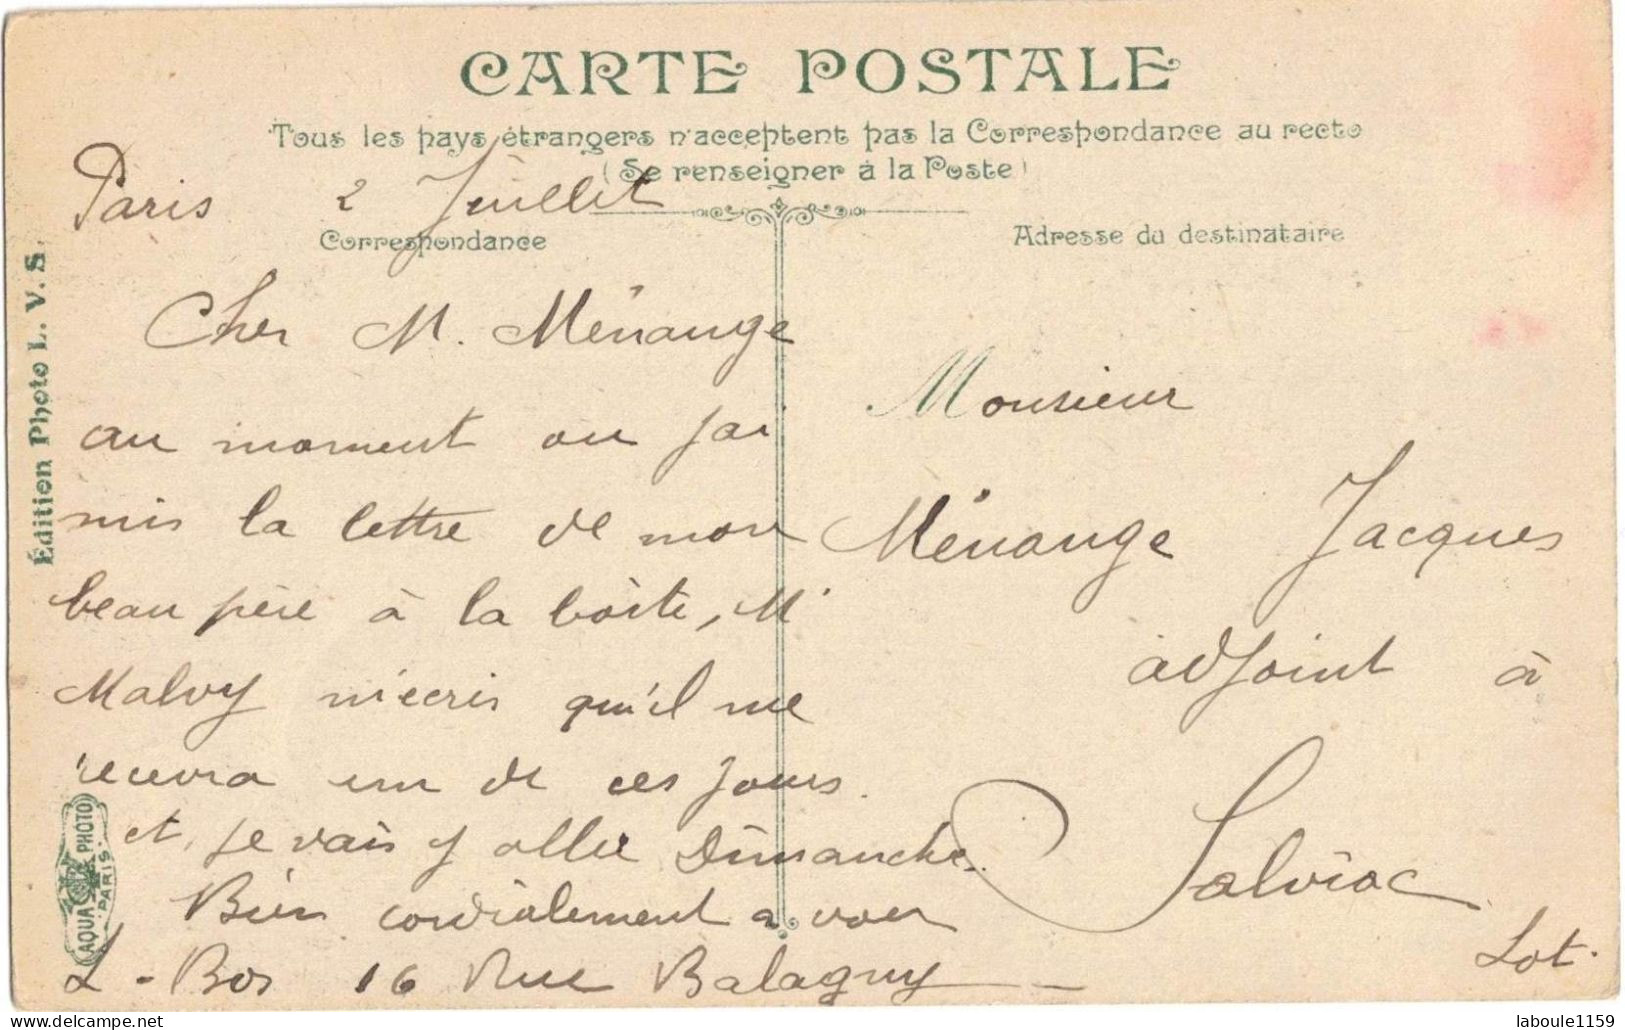 CARTE POSTALE
Tous les pays étrangers n'acceptent pas la Correspondance au recto
(Se renseigner à la Poste)
Paris 2 Juillet
Correspondance
Adresse du destinataire
Cher M. Ménange
au moment ou j'ai
mis la lettre de mon
beau père à la boîte, Mr
Malvy m'ecris qu'il me
recevra un de ces jours.
et, je vais y aller Dimanche.
Bien cordialement a vous
L. Bos 16 Rue Balagny
Monsieur
Ménange Jacques
adjoint à
Salviac
Lot.
Édition Photo L. V. S.
AQUA PHOTO
PARIS
laboule1159